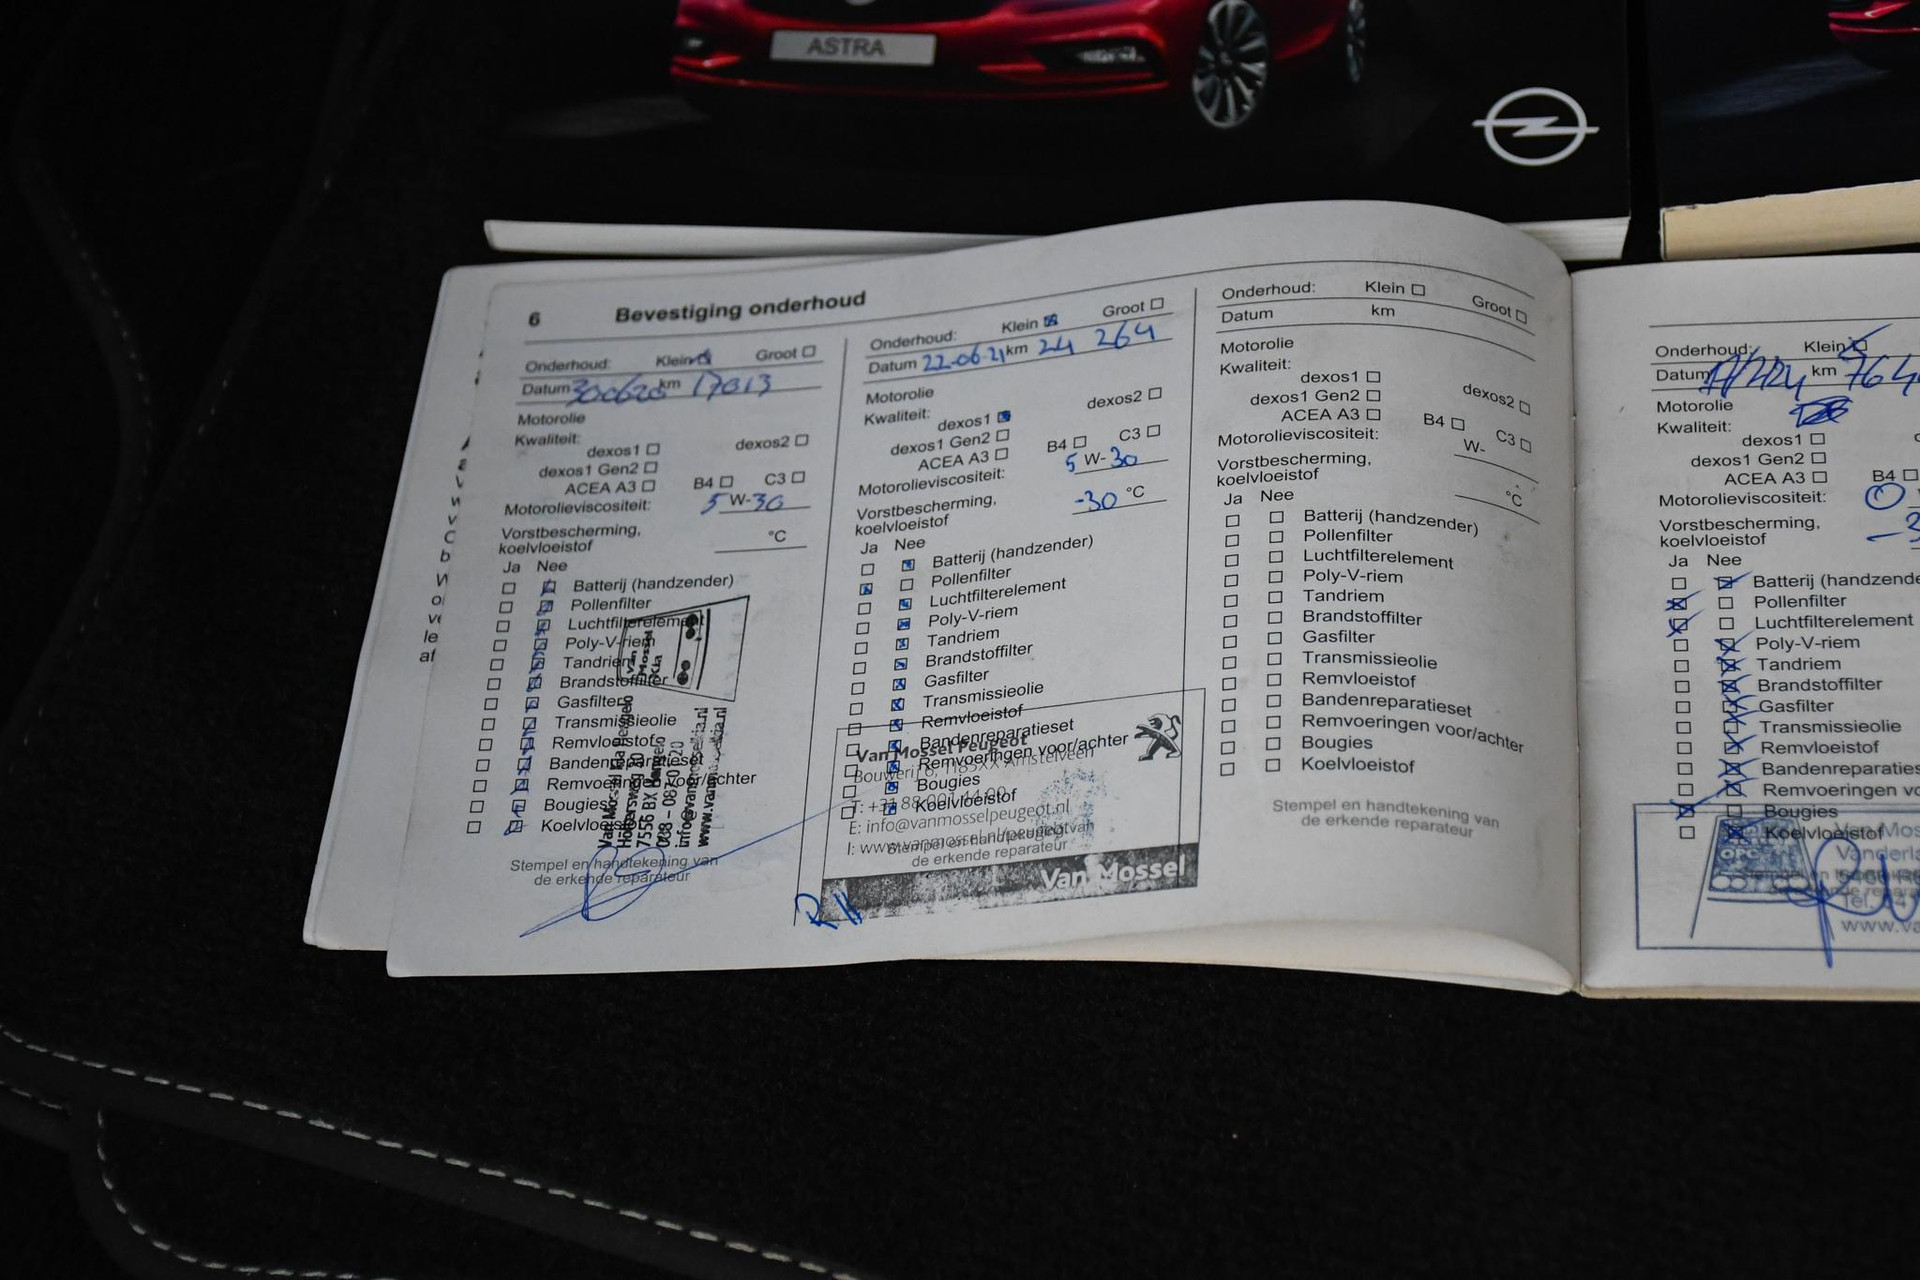 ASTRA
6 Bevestiging onderhoud
Onderhoud: Klein Groot
Datum 300620 km 17013
Motorolie
Kwaliteit:
dexos1 dexos2
dexos1 Gen2
ACEA A3 B4 C3
Motorolieviscositeit: 5 W-30
Vorstbescherming,
koelvloeistof °C
Ja Nee
Batterij (handzender)
Pollenfilter
Luchtfilterelement
Poly-V-riem
Tandriem
Brandstoffilter
Gasfilter
Transmissieolie
Remvloeistof
Bandenreparatieset
Remvoeringen voor/achter
Bougies
Koelvloeistof
Stempel en handtekening van
de erkende reparateur
Van
Mossel
Kia
7556 BX Hengelo
www.vanmosselkia.nl
Onderhoud: Klein Groot
Datum 22-06-21 km 24 264
Motorolie
Kwaliteit:
dexos1 dexos2
dexos1 Gen2
ACEA A3 B4 C3
Motorolieviscositeit: 5 W-30
Vorstbescherming,
koelvloeistof -30 °C
Ja Nee
Batterij (handzender)
Pollenfilter
Luchtfilterelement
Poly-V-riem
Tandriem
Brandstoffilter
Gasfilter
Transmissieolie
Remvloeistof
Bandenreparatieset
Remvoeringen voor/achter
Bougies
Koelvloeistof
Stempel en handtekening van
de erkende reparateur
Van Mossel Peugeot
Bouwerij 6, 1185XX Amstelveen
E: info@vanmosselpeugeot.nl
I: www.vanmossel.nl/peugeot
Van Mossel
Onderhoud: Klein Groot
Datum km
Motorolie
Kwaliteit:
dexos1 dexos2
dexos1 Gen2
ACEA A3 B4 C3
Motorolieviscositeit: W-
Vorstbescherming,
koelvloeistof °C
Ja Nee
Batterij (handzender)
Pollenfilter
Luchtfilterelement
Poly-V-riem
Tandriem
Brandstoffilter
Gasfilter
Transmissieolie
Remvloeistof
Bandenreparatieset
Remvoeringen voor/achter
Bougies
Koelvloeistof
Stempel en handtekening van
de erkende reparateur
Onderhoud: Klein
Datum km
Motorolie
Kwaliteit:
dexos1
dexos1 Gen2
ACEA A3 B4
Motorolieviscositeit: 0
Vorstbescherming,
koelvloeistof
Ja Nee
Batterij (handzende
Pollenfilter
Luchtfilterelement
Poly-V-riem
Tandriem
Brandstoffilter
Gasfilter
Transmissieolie
Remvloeistof
Bandenreparaties
Remvoeringen vo
Bougies
Koelvloeistof